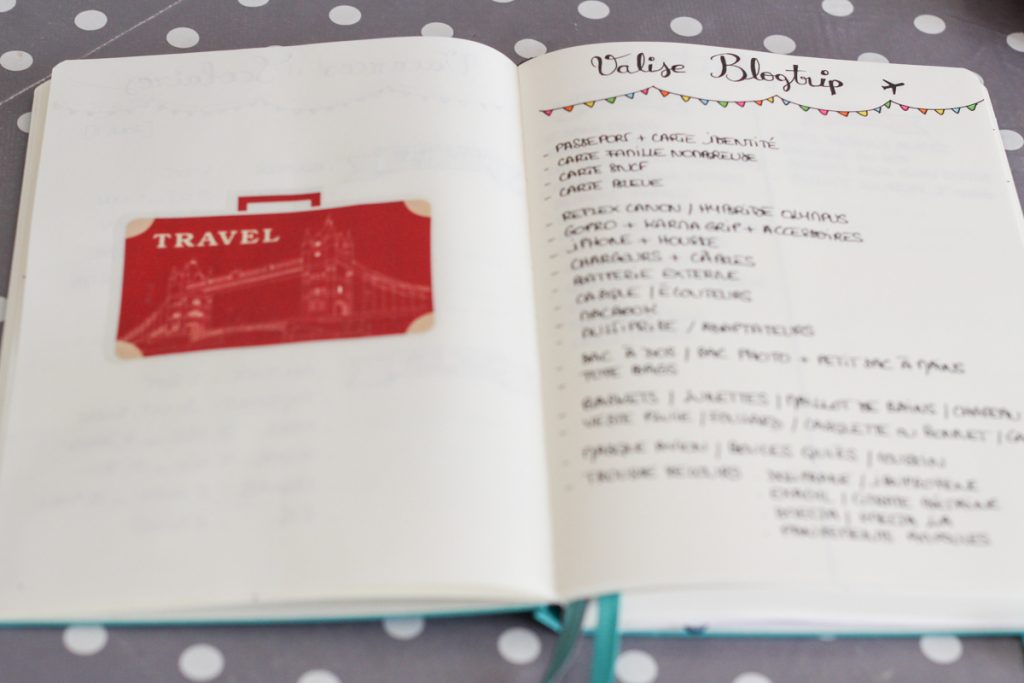 TRAVEL
Valise Blogtrip
- PASSEPORT + CARTE IDENTITÉ
- CARTE FAMILLE NOMBREUSE
- CARTE SNCF
- CARTE BLEUE
- REFLEX CANON / HYBRIDE OLYMPUS
- GOPRO + KARMA GRIP + ACCESSOIRES
- IPHONE + HOUSSE
- CHARGEURS + CÂBLES
- BATTERIE EXTERNE
- CASQUE / ÉCOUTEURS
- MACBOOK
- MULTIPRISE / ADAPTATEURS
- SAC À DOS / SAC PHOTO + PETIT SAC À MAINS
- TOTE BAGS
- BASKETS / LUNETTES / MAILLOT DE BAINS / CHAPEAU
- VESTE PLUIE / FOULARD / CASQUETTE OU BONNET /
- MASQUE AVION / BOULES QUIÈS / COUSSIN
- TROUSSE SECOURS DOLIPRANE / IBUPROFENE